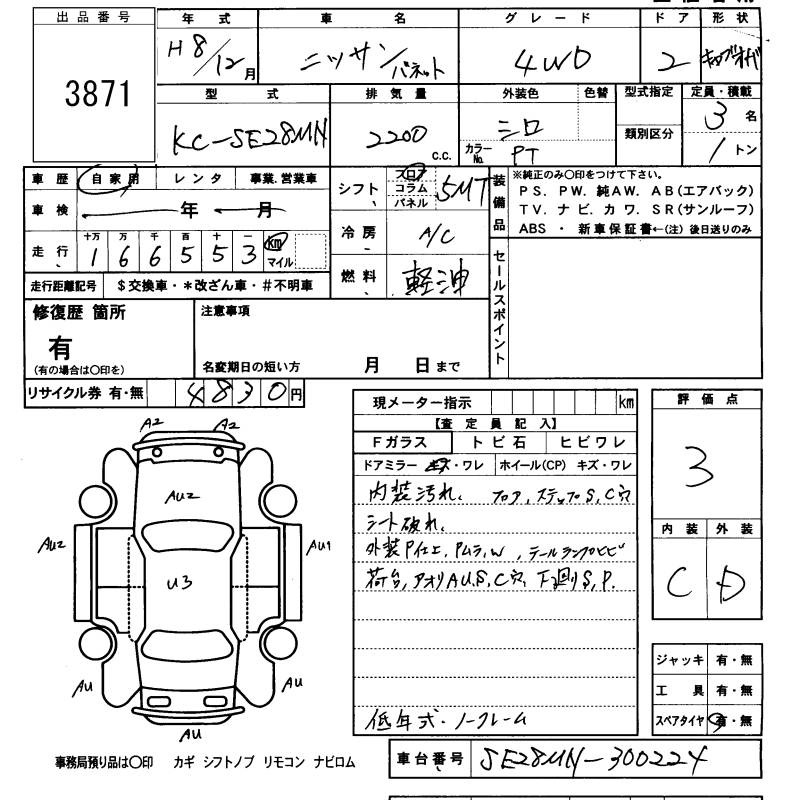 出品番号
3871
年式 車名 グレード ドア 形状
H8/12月 ニッサン バネット 4WD 2
型式 排気量 外装色 色替 型式指定 定員・積載
KC-SE28MN 2200 c.c. シロ 3名
カラーNo. PT 類別区分 1トン
車歴 自家用 レンタ 事業.営業車
車検 年 月
走行 十万 万 千 百 十 一 km マイル
1 6 6 5 5 3
走行距離記号 $交換車・*改ざん車・#不明車
シフト フロア コラム パネル 5MT
冷房 A/C
燃料 軽油
装備品
※純正のみ〇印をつけて下さい。
PS. PW. 純AW. AB(エアバック)
TV. ナビ. カワ. SR(サンルーフ)
ABS ・ 新車保証書←(注)後日送りのみ
セールスポイント
修復歴 箇所
有
(有の場合は〇印を)
注意事項
名変期日の短い方 月 日まで
リサイクル券 有・無 4830円
現メーター指示 km
【査定員記入】
Fガラス トビ石 ヒビワレ
ドアミラー キズ・ワレ ホイール(CP) キズ・ワレ
内装汚れ、フロア,ステップS,C穴
シート破れ、
外装P仕上,Pムラ,W,テールランプヒビ
荷台,アオリAU,S,C穴,下回りS,P.
低年式・ノークレーム
評価点
3
内装 外装
C D
ジャッキ 有・無
工具 有・無
スペアタイヤ 有・無
A2 A2
AU2
AU2 AU1
U3
AU AU
AU
事務局預り品は〇印 カギ シフトノブ リモコン ナビロム
車台番号 SE28MN-300224